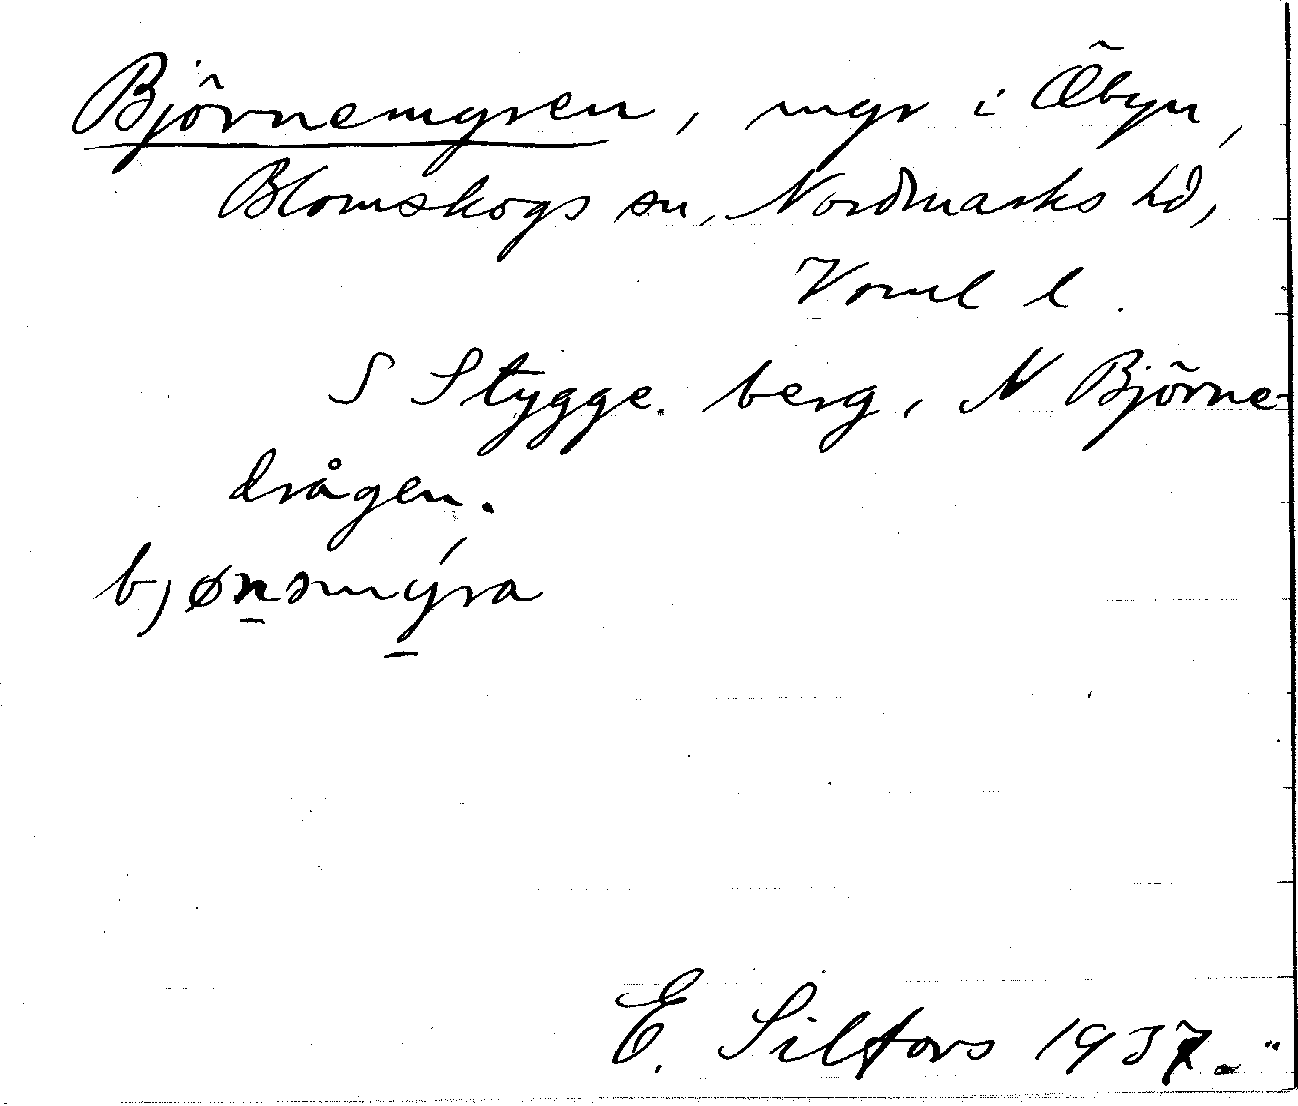 Björnemyren, myr i Öbyn,
Blomskogs sn, Nordmarks hd,
Vrml l.
S Stygge. berg, N Björne-
drågen.
bjønsmýra
E. Silfors 1937